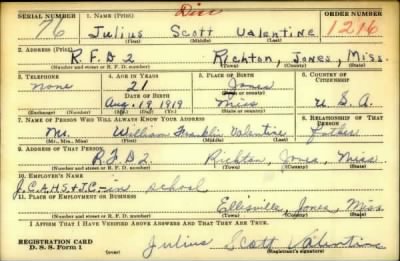 SERIAL NUMBER 1. NAME (Print) Disc ORDER NUMBER
76 Julius Scott Valentine 1216
(First) (Middle) (Last)
2. ADDRESS (Print)
R.F.D 2 Richton, Jones, Miss.
(Number and street or R. F. D. number) (Town) (County) (State)
3. TELEPHONE 4. AGE IN YEARS 5. PLACE OF BIRTH 6. COUNTRY OF CITIZENSHIP
none 21 Jones
DATE OF BIRTH (Town or county)
Aug. 19 1919 Miss U.S.A.
(Exchange) (Number) (Mo.) (Day) (Yr.) (State or country)
7. NAME OF PERSON WHO WILL ALWAYS KNOW YOUR ADDRESS 8. RELATIONSHIP OF THAT PERSON
Mr. William Franklin Valentine Father
(Mr., Mrs., Miss) (First) (Middle) (Last)
9. ADDRESS OF THAT PERSON
R.F.D2. Richton, Jones, Miss.
(Number and street or R. F. D. number) (Town) (County) (State)
10. EMPLOYER'S NAME
J.C.A.H.S & J.C.-in school
11. PLACE OF EMPLOYMENT OR BUSINESS
Ellisville, Jones, Miss
(Number and street or R. F. D. number) (Town) (County) (State)
I AFFIRM THAT I HAVE VERIFIED ABOVE ANSWERS AND THAT THEY ARE TRUE.
REGISTRATION CARD
D. S. S. Form 1 Julius Scott Valentine
(Registrant's signature)